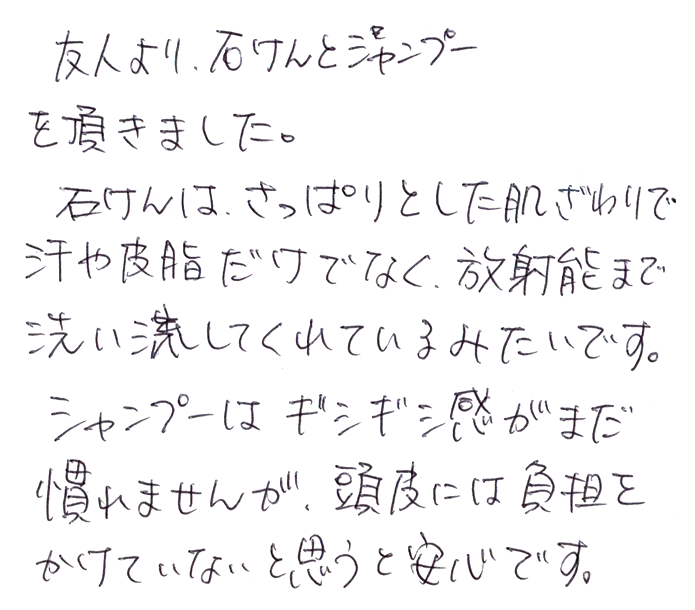 友人より、石けんとシャンプー
を頂きました。
石けんは、さっぱりとした肌ざわりで
汗や皮脂だけでなく、放射能まで
洗い流してくれているみたいです。
シャンプーはギシギシ感がまだ
慣れませんが、頭皮には負担を
かけていないと思うと安心です。